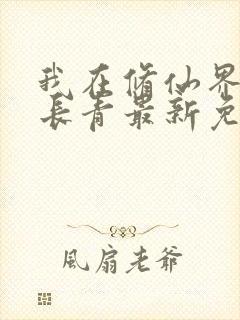 我在修仙界
长青最新免
風扇老爺